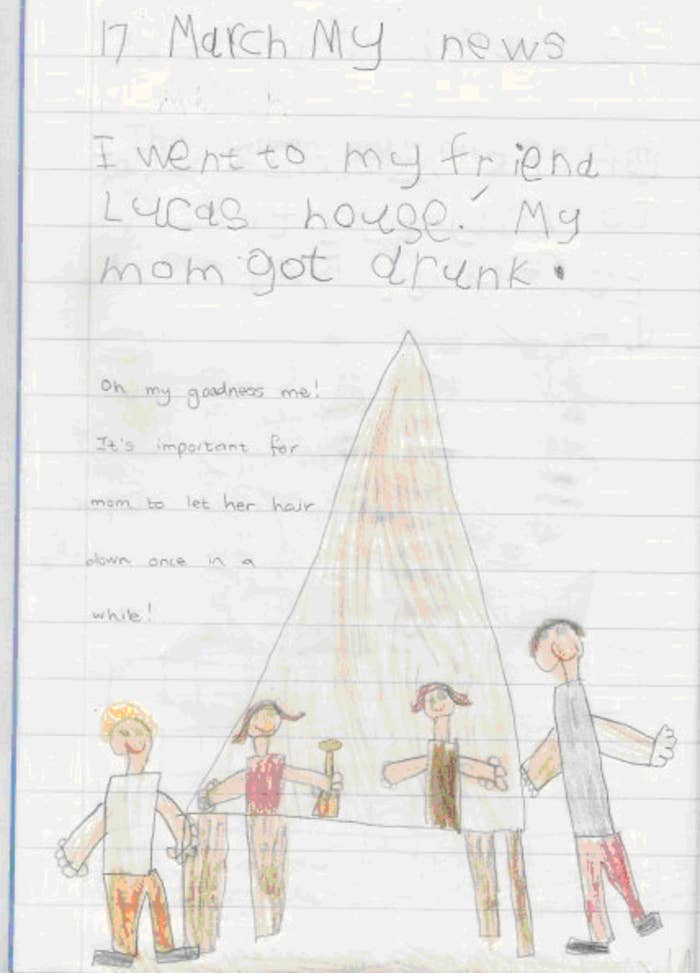 17 March My news
I went to my friend
Lucas house. My
mom got drunk.
Oh my goodness me!
It's important for
mom to let her hair
down once in a
while!